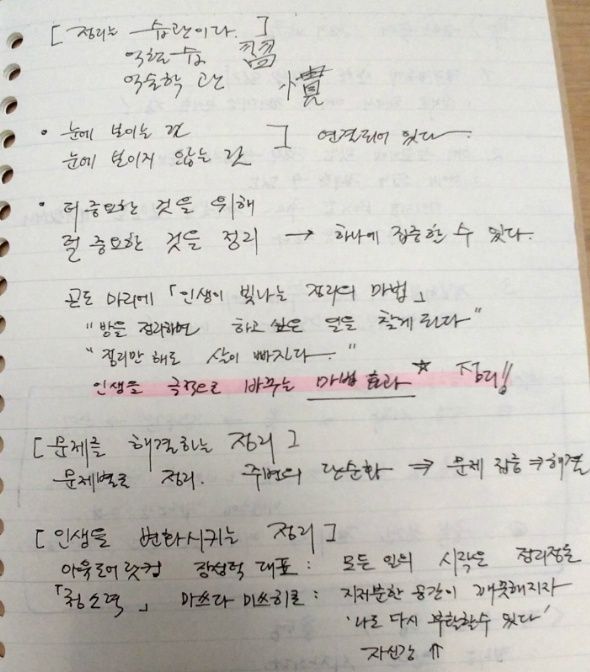 [ 정리는 습관이다. ]
익힐 습 習
익숙할 관 慣
• 눈에 보이는 것 ] 연결되어 있다.
눈에 보이지 않는 것
• 더 중요한 것을 위해
덜 중요한 것을 정리 → 하나에 집중할 수 있다.
곤도 마리에 「인생이 빛나는 정리의 마법」
"방을 정리하면 하고 싶은 일을 찾게 된다"
"정리만 해도 살이 빠진다."
인생을 극적으로 바꾸는 마법 효과 ☆ 정리!!
[ 문제를 해결하는 정리 ]
문제별로 정리. 주변의 단순화 ⇒ 문제 집중 ⇒ 해결
[ 인생을 변화시키는 정리 ]
대표 : 모든 일의 시작은 정리정돈
「청소력」 마쓰다 미쓰히로 : 지저분한 공간이 깨끗해지자
'나도 다시 부활할 수 있다'
자신감 ⇑